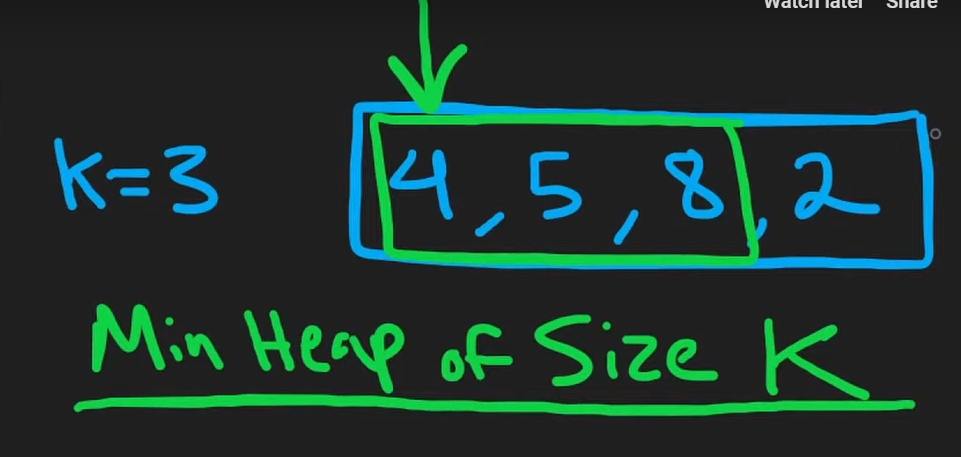 Watch later Share
K=3
4, 5, 8, 2
Min Heap of Size K